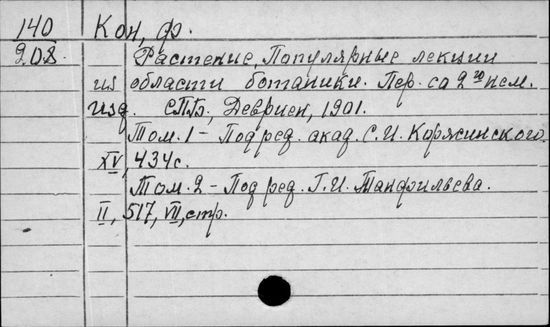 140 Кон, Ф.
208 Растение, Популярные лекции
из области ботаники. Пер. са 2го нем.
изд. СПБ, Девриен, 1901.
Том. 1 - Под ред. акад. С. И. Коржинского.
XV, 434 с.
Том. 2 - Под ред. Г. И. Танфильева.
II, 517, VII, стр.